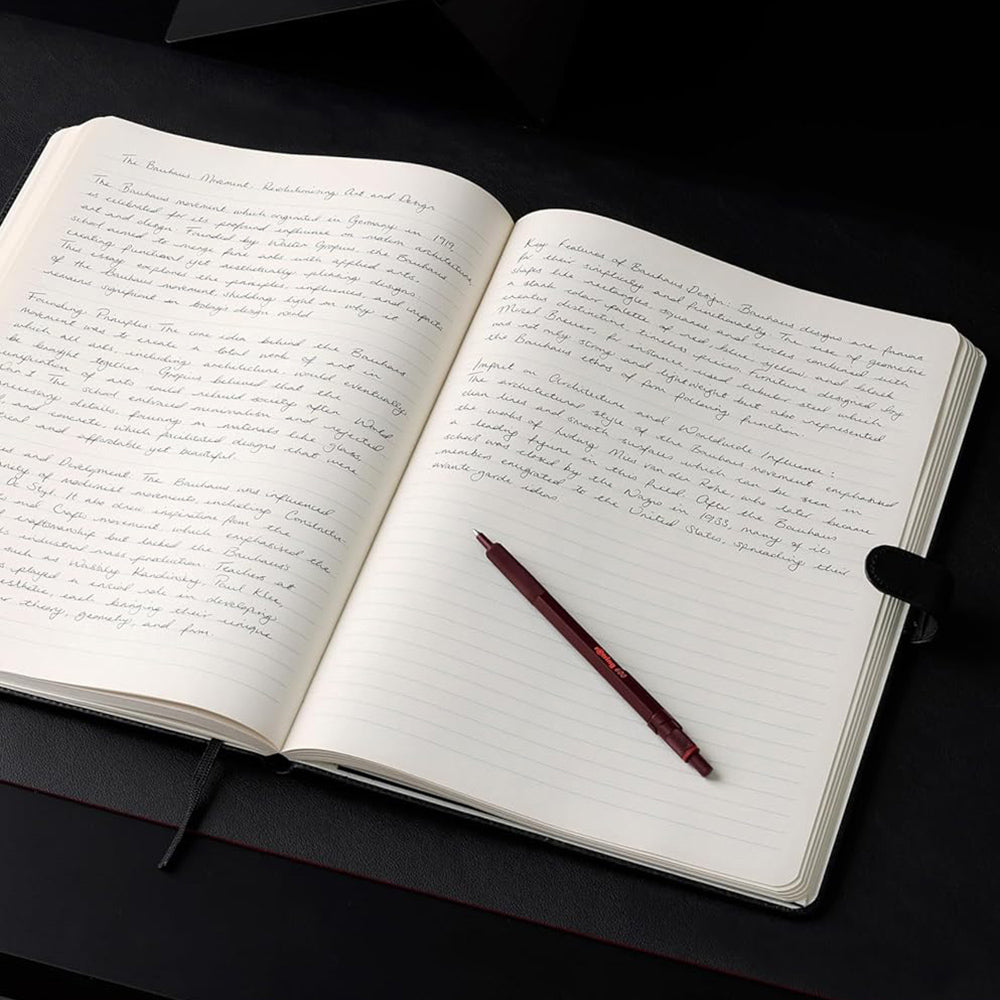 The Bauhaus Movement: Revolutionising Art and Design
The Bauhaus movement which originated in Germany in 1919,
is celebrated for its profound influence on modern architecture,
art and design. Founded by Walter Gropius the Bauhaus
school aimed to merge fine arts with applied arts
creating functional yet aesthetically pleasing designs.
This essay explores the principles, influences, and impacts
of the Bauhaus movement shedding light on why it
remains significant in todays design world
Founding Principles: The core idea behind the Bauhaus
movement was to create a total work of art in
which all arts, including architecture, would eventually
be brought together. Gropius believed that the
unification of arts could rebuild society after World
War I. The school embraced minimalism and rejected
details, focusing on materials like glass,
and concrete, which facilitated designs that were
and affordable yet beautiful.
and Development: The Bauhaus was influenced
of modernist movements including
De Stijl. It also drew inspiration from the
and Crafts movement, which emphasised the
craftsmanship but lacked the Bauhaus's
industrial mass production. Teachers at
such as Wassily Kandinsky, Paul Klee,
played a crucial role in developing
each bringing their unique
theory, geometry, and form.
Key Features of Bauhaus Design: Bauhaus designs are famous
for their simplicity and functionality. The use of geometric
shapes like rectangles, squares and circles combined with
a stark colour palette of red, blue, yellow and black
creates distinctive, timeless pieces. Furniture designed by
Marcel Breuer, for instance, used tubular steel which
was not only strong and lightweight but also represented
the Bauhaus ethos of form following function.
Impact on Architecture and Worldwide Influence:
The architectural style of the Bauhaus movement emphasised
clean lines and smooth surfaces which can be seen in
the works of Ludwig Mies van der Rohe, who later became
a leading figure in this field. After the Bauhaus
school was closed by the Nazis in 1933, many of its
members emigrated to the United States, spreading their
avante-garde ideas.
rotring 600